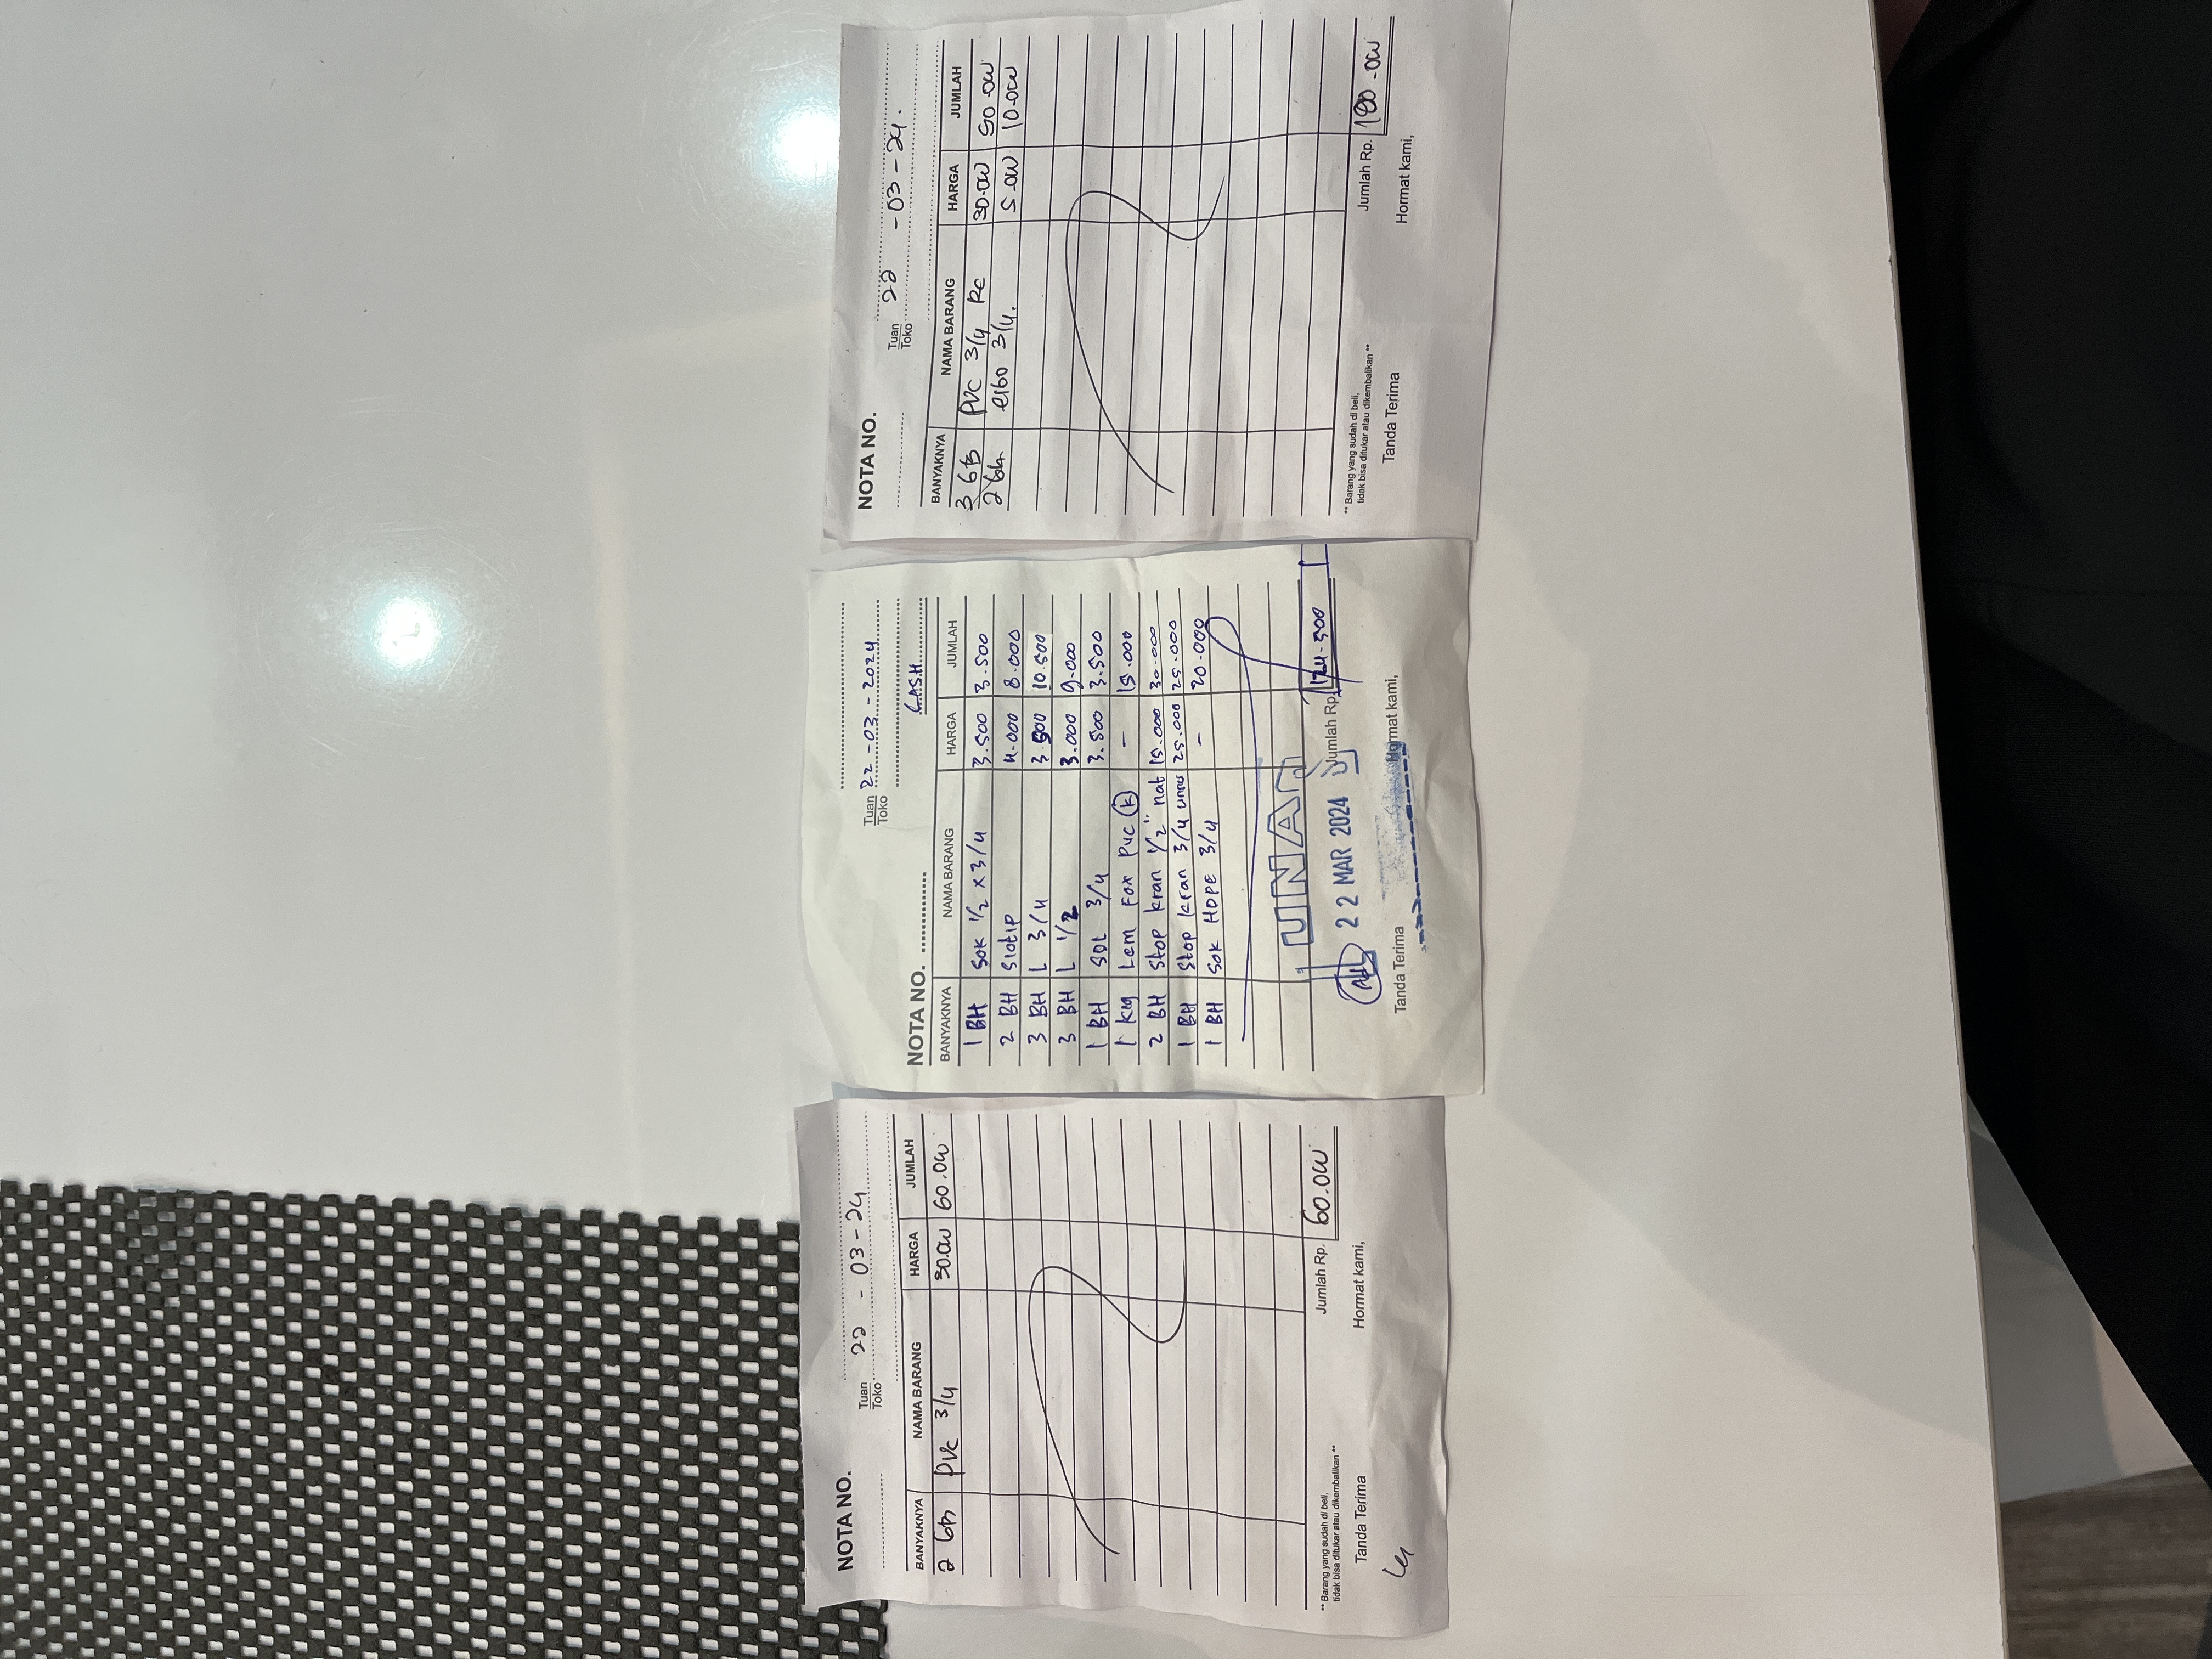 NOTA NO. ....................
Tuan
Toko
22 - 03 - 24
BANYAKNYA NAMA BARANG HARGA JUMLAH
2 Btg PVC 3/4 30.000 60.000
Jumlah Rp. 60.000
** Barang yang sudah di beli,
tidak bisa ditukar atau dikembalikan **
Tanda Terima Hormat kami,
NOTA NO. ....................
Tuan
Toko
22 - 03 - 2024
CASH
BANYAKNYA NAMA BARANG HARGA JUMLAH
1 BH Sok 1/2 x 3/4 3.500 3.500
2 BH Slotip 4.000 8.000
3 BH L 3/4 3.500 10.500
3 BH L 1/2 3.000 9.000
1 BH SDL 3/4 3.500 3.500
1 Kg Lem Fox PVC (K) - 15.000
2 BH Stop Kran 1/2" nat 15.000 30.000
1 BH Stop Kran 3/4 25.000 25.000
1 BH Sok HDPE 3/4 - 20.000
LUNAS
22 MAR 2024
Jumlah Rp. 124.500
Tanda Terima Hormat kami,
NOTA NO. ....................
Tuan
Toko
22 - 03 - 24.
BANYAKNYA NAMA BARANG HARGA JUMLAH
3 Btg PVC 3/4 Rc 30.000 90.000
2 bh elbo 3/4. 5.000 10.000
Jumlah Rp. 100.000
** Barang yang sudah di beli,
tidak bisa ditukar atau dikembalikan **
Tanda Terima Hormat kami,